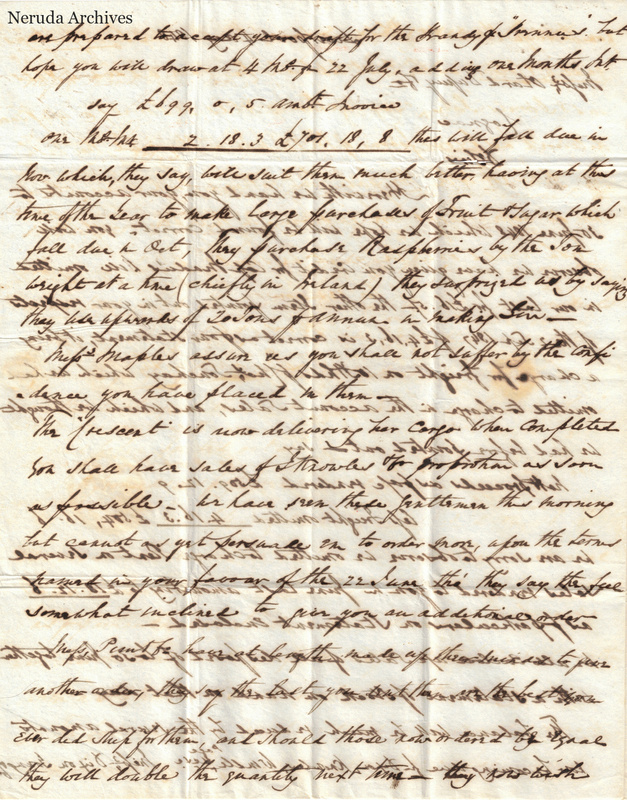 Neruda Archives
are prepared to accept your draft for the Brandy p "Minimus" but
hope you will draw at 4 Mts fm 22 July, adding one Months Int
say £699, 0, 5 amt Invoice
one Mt Int 2. 18. 3 £701, 18, 8 this will fall due in
Nov which, they say, will suit them much better, having at this
time of the Year to make large purchases of Fruit & Sugar which
fall due in Oct, they purchase Raspberries by the Ton
weight at a time (chiefly in Ireland) they surprized us by saying
they use upwards of 20 Tons p annum in making
Messrs Maples assure us you shall not suffer by the confi
-dence you have placed in them
The "Crescent" is now delivering her cargo when completed
you shall have sales of Knowles as soon
as possible - We have seen these gentlemen this morning
but cannot as yet persuade em to order more, upon the terms
named in your favour of the 22 June, tho' they say they feel
somewhat inclined to give you an additional order
Messrs have at length made up their minds to give
another order, they say the last you sent them were the best you
ever did ship for them, and should those now ordered be equal
they will double the quantity next time - they now wish